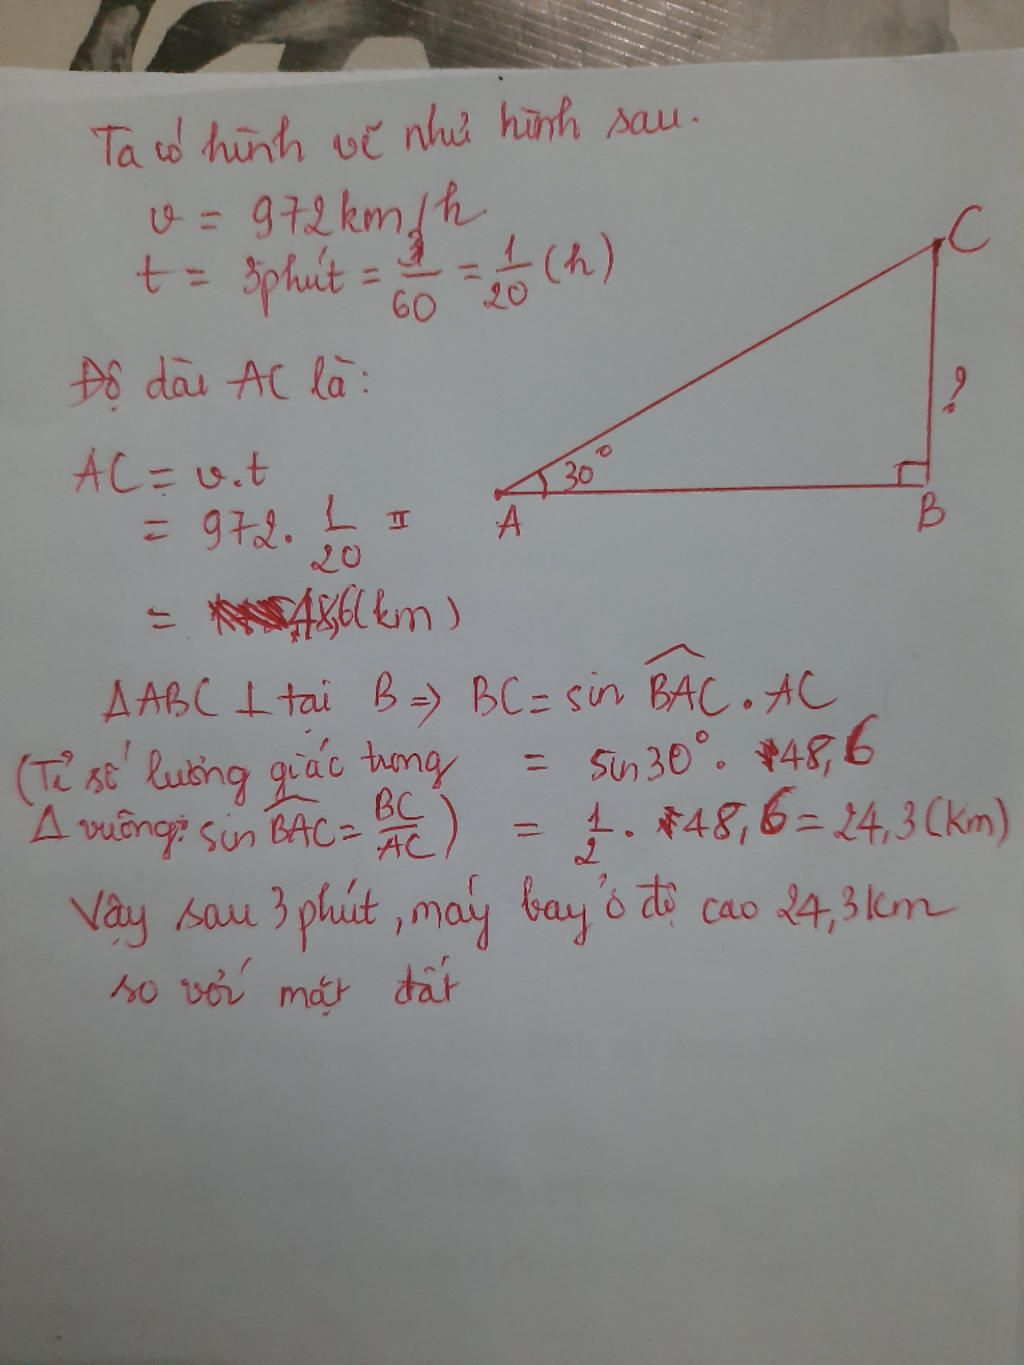 Ta có hình vẽ như hình sau.
v = 972 km/h
t = 3phút = 3/60 = 1/20 (h)
C
?
30°
A
B
Độ dài AC là:
AC = v.t
= 972 . 1/20
= 48,6 (km)
ΔABC ⊥ tại B => BC = sin BAC . AC
(Tỉ số lượng giác trong = sin30° . 48,6
Δ vuông: sin BAC = BC/AC) = 1/2 . 48,6 = 24,3 (km)
Vậy sau 3 phút, máy bay ở độ cao 24,3 km
so với mặt đất